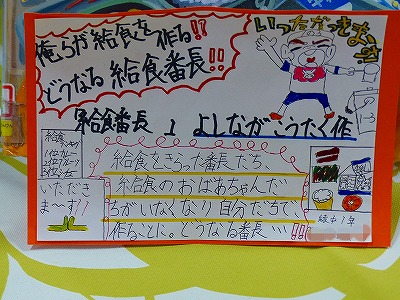 俺らが給食を作る!?
どうなる給食番長!!
いっただっきまーす
給食番長 1 よしながこうたく作
給食
いただき
ま〜す!!
給食をきらった番長だち、
給食のおばあちゃんだ
ちがいなくなり自分だちで、
作ることに。どうなる番長…!!!
緑中1年